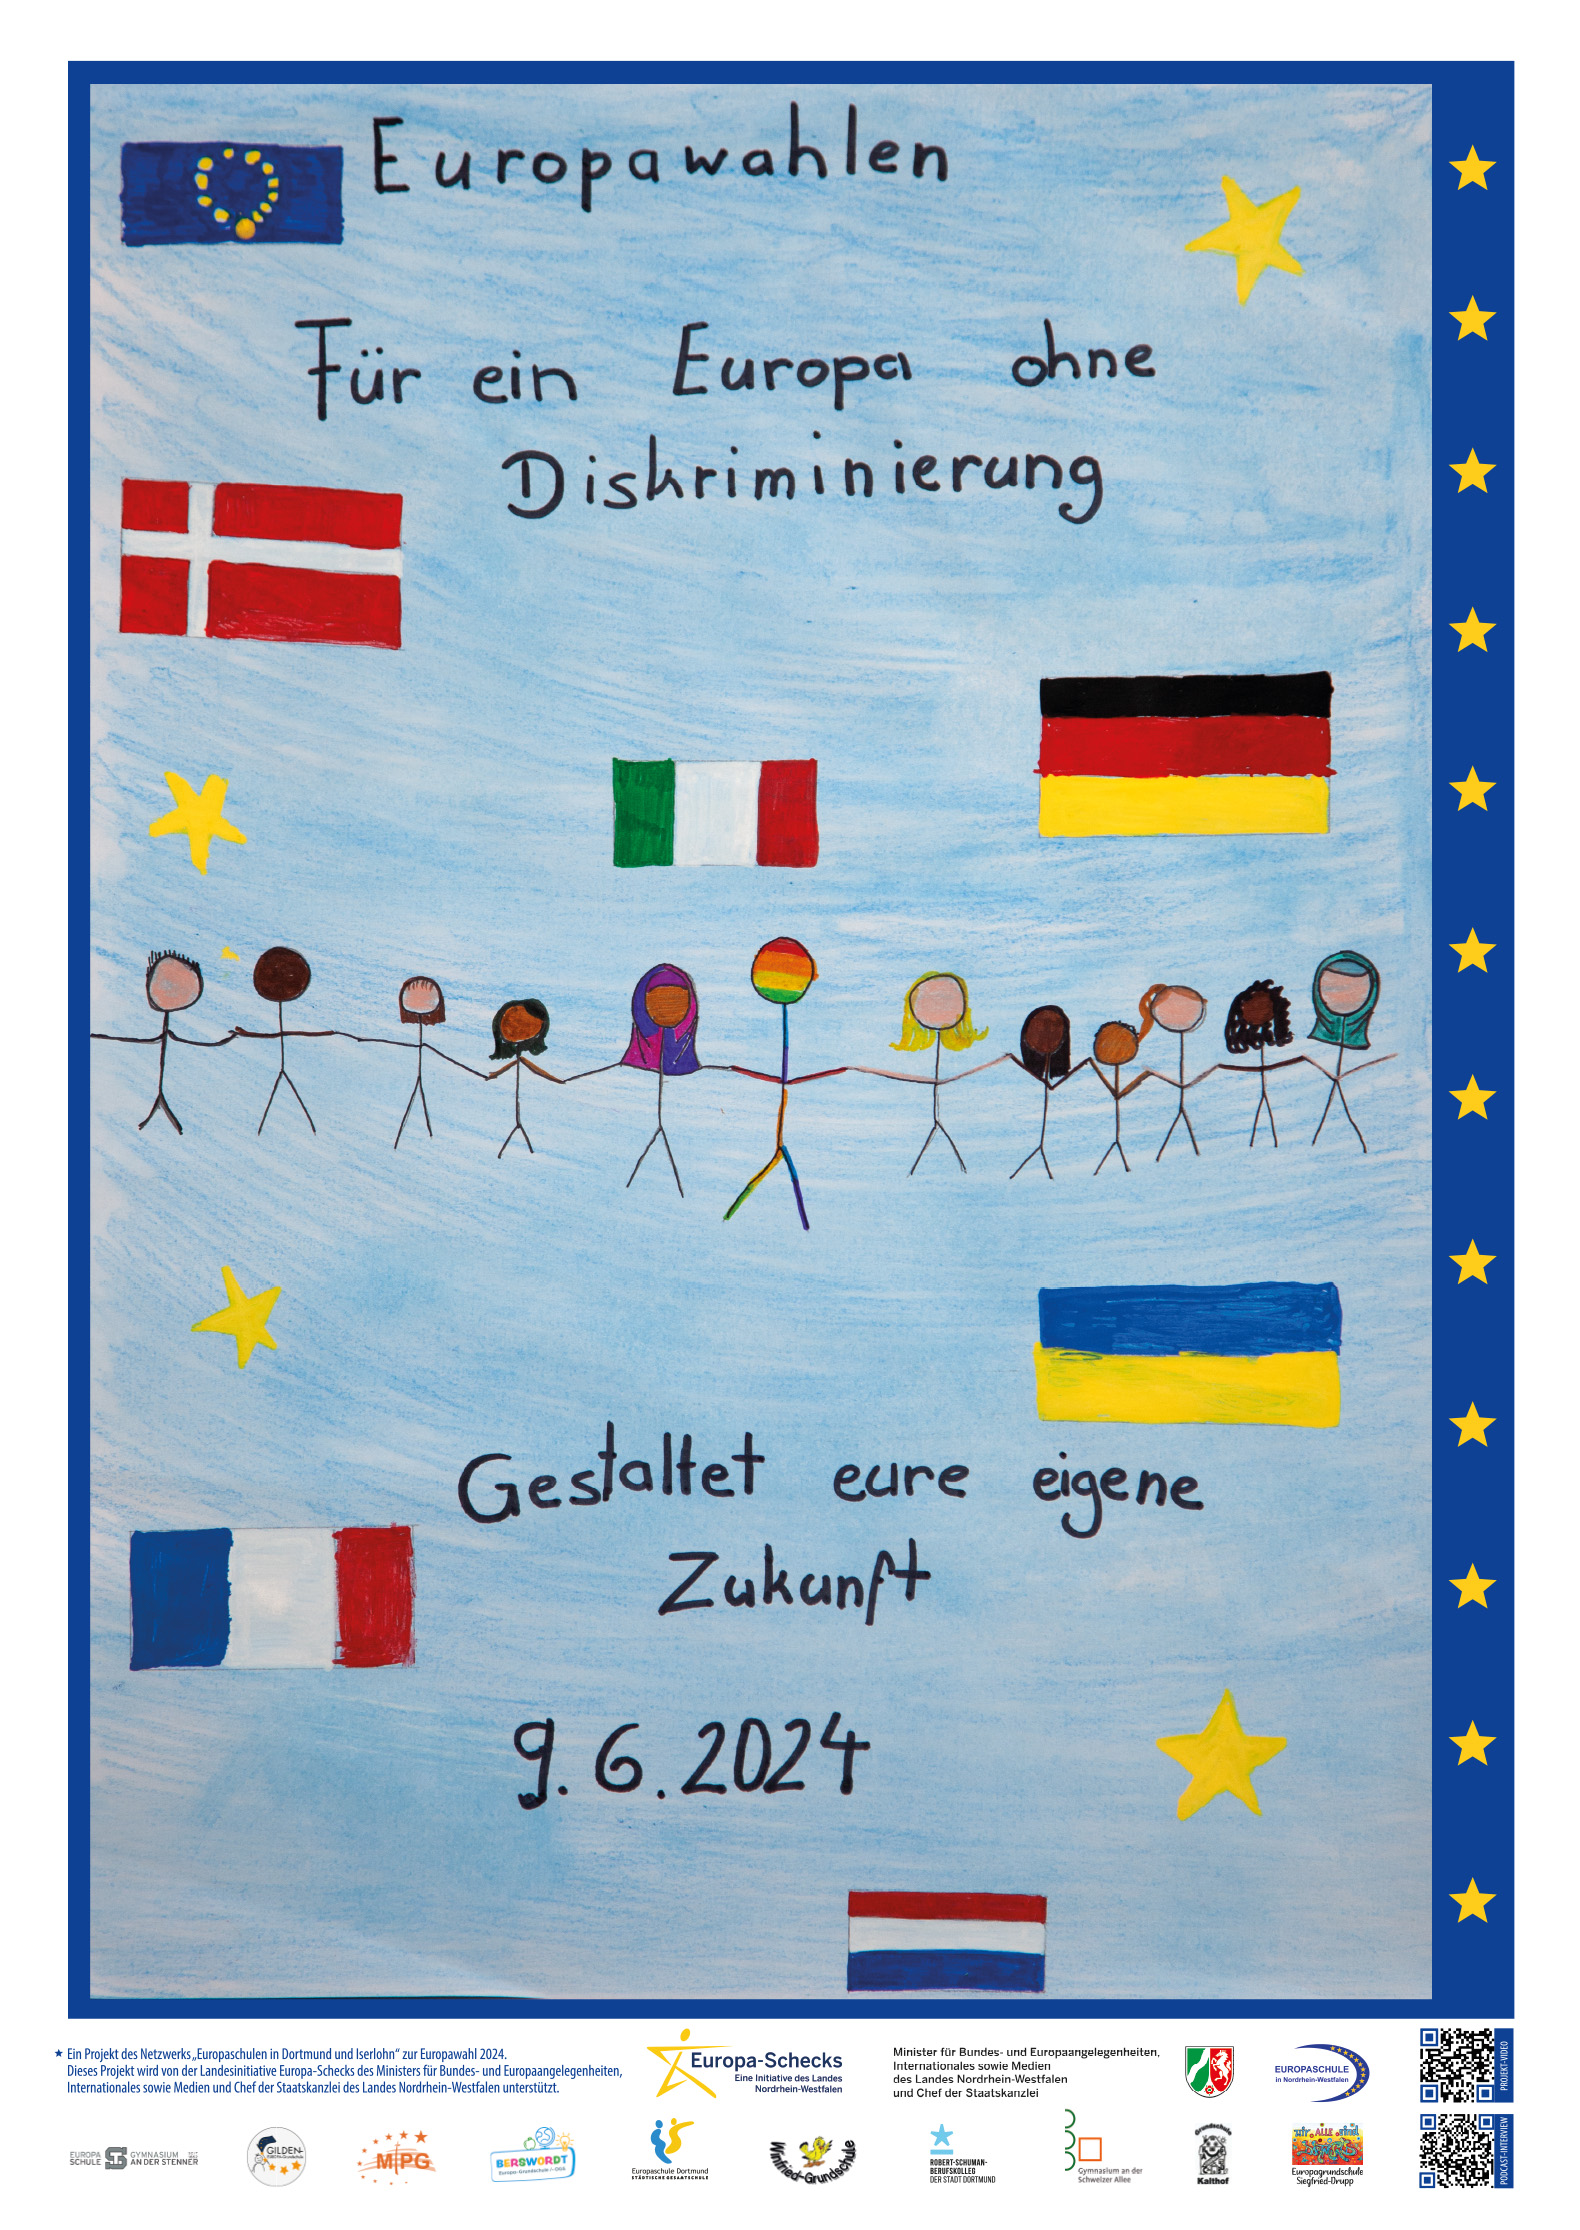 Europawahlen
Für ein Europa ohne
Diskriminierung
Gestaltet eure eigene
Zukunft
9.6.2024
★ Ein Projekt des Netzwerks „Europaschulen in Dortmund und Iserlohn“ zur Europawahl 2024.
Dieses Projekt wird von der Landesinitiative Europa-Schecks des Ministers für Bundes- und Europaangelegenheiten,
Internationales sowie Medien und Chef der Staatskanzlei des Landes Nordrhein-Westfalen unterstützt.
Europa-Schecks
Eine Initiative des Landes
Nordrhein-Westfalen
Minister für Bundes- und Europaangelegenheiten,
Internationales sowie Medien
des Landes Nordrhein-Westfalen
und Chef der Staatskanzlei
EUROPASCHULE
in Nordrhein-Westfalen
PROJEKT-VIDEO
EUROPA
SCHULE
GYMNASIUM
AN DER STENNER
GILDEN-
MPG
BERSWORDT
Europa-Grundschule
Europaschule Dortmund
STÄDTISCHE GESAMTSCHULE
Winfried-Grundschule
ROBERT-SCHUMAN-
BERUFSKOLLEG
DER STADT DORTMUND
Gymnasium an der
Schweizer Allee
Grundschule
Kalthof
WIR ALLE sind
Europagrundschule
Siegfried-Drupp
PODCAST-INTERVIEW